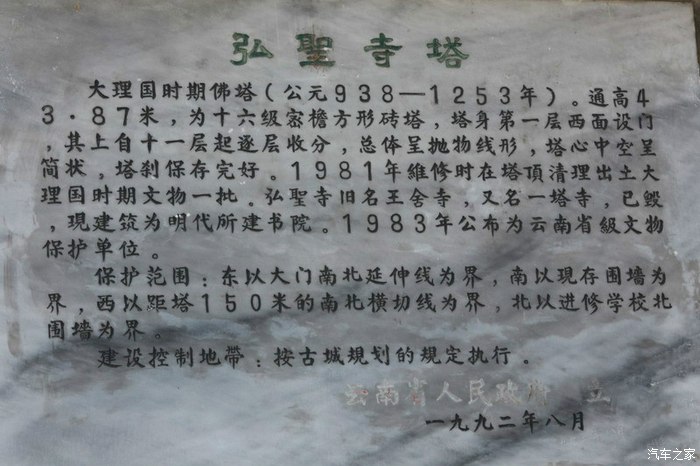 弘聖寺塔
大理国时期佛塔（公元938—1253年）。通高4
3·87米，为十六级密檐方形砖塔，塔身第一层西面设门
，其上自十一层起逐层收分，总体呈抛物线形，塔心中空呈
简状，塔刹保存完好。1981年维修时在塔頂清理出土大
理国时期文物一批。弘聖寺旧名王舍寺，又名一塔寺，已毁
，現建筑为明代所建书院。1983年公布为云南省級文物
保护单位。
保护范围：东以大门南北延伸线为界，南以现存围墙为
界，西以距塔150米的南北横切线为界，北以进修学校北
围墙为界。
建设控制地带：按古城规划的规定执行。
云南省人民政府 立
一九九二年八月
汽车之家